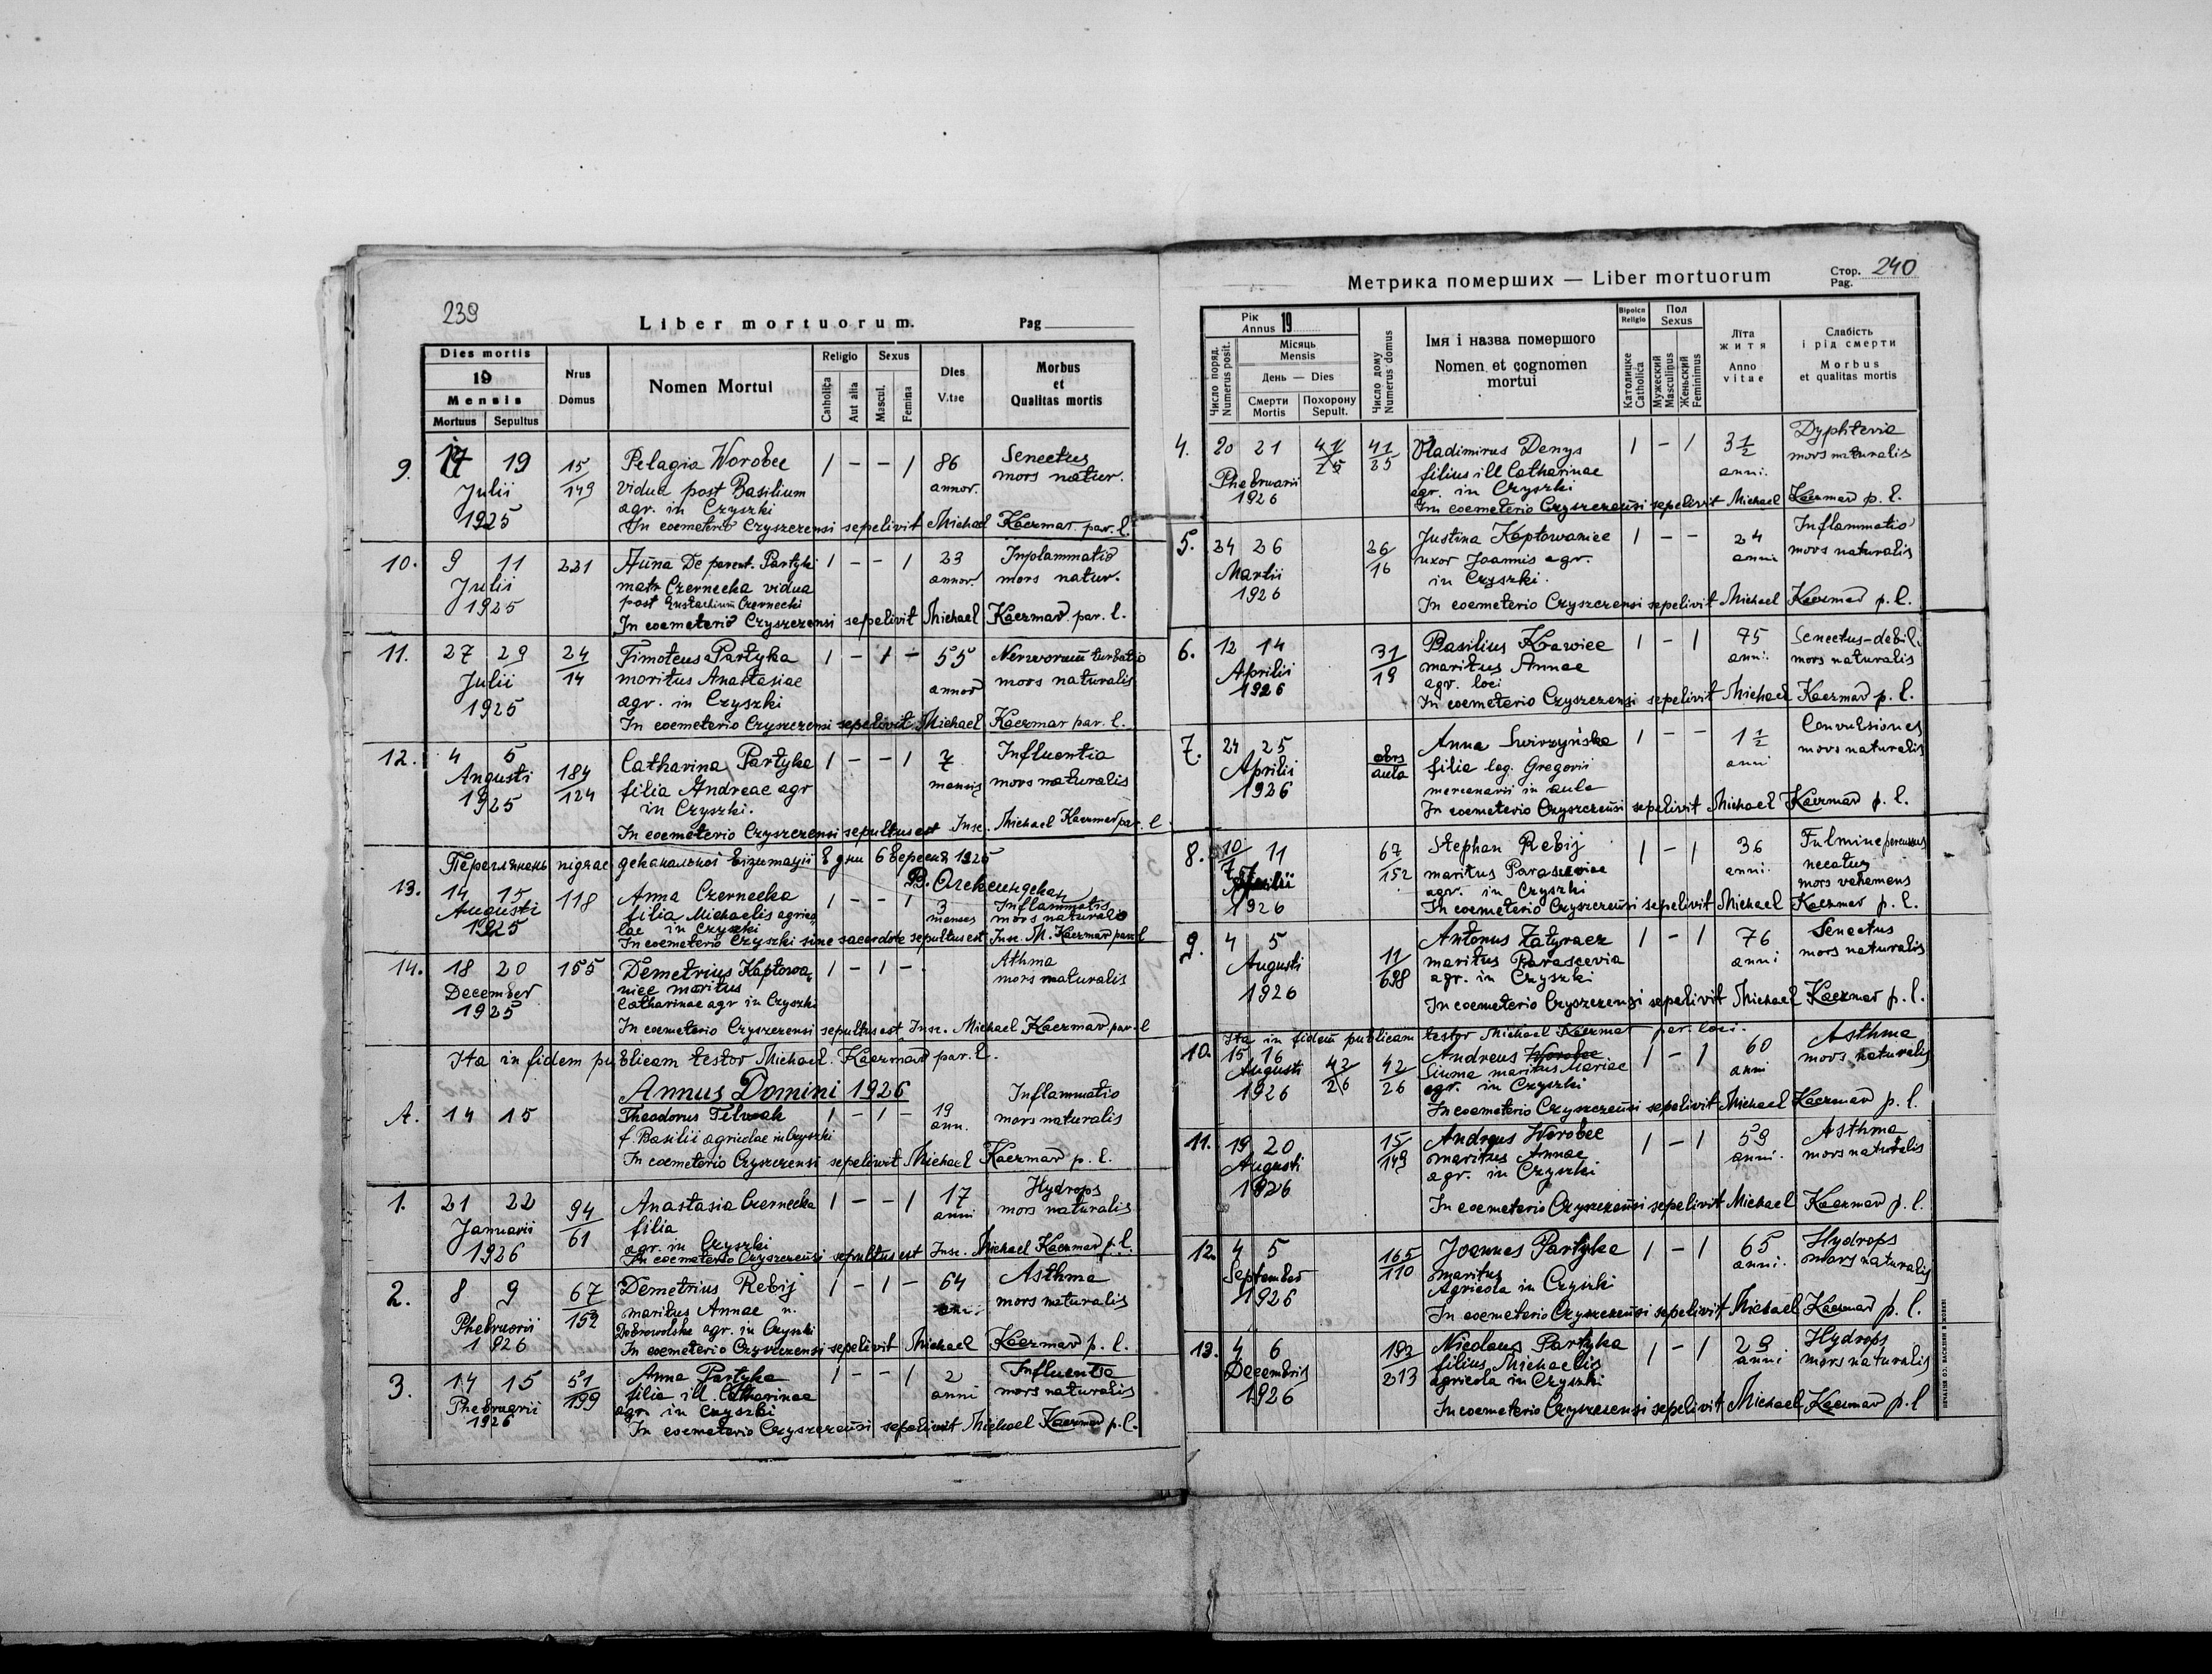 239
Liber mortuorum.
Pag
Dies mortis
19
Mensis
Mortuus Sepultus
Nrus Domus
Nomen Mortui
Religio
Catholica
Aut alia
Sexus
Mascul.
Femina
Dies Vitae
Morbus et Qualitas mortis
9. 17 19 15/149 Pelagia Worobec 1 - - 1 86 Senectus
Julii vidua post Basilium annor. mors natur.
1925 agr. in Czyszki
In coemeterio Czyszczensi sepelivit Michael Kaczmar par. l.
10. 9 11 221 Anna De parent. Partyki 1 - - 1 23 Inflammatio
Julii matr Czernecka vidua annor. mors natur.
1925 post Eustachium Czernecki
In coemeterio Czyszczensi sepelivit Michael Kaczmar par. l.
11. 27 29 24/14 Timoteus Partyka 1 - 1 - 55 Nervorum turbatio
Julii maritus Anastasiae annor mors naturalis
1925 agr. in Czyszki
In coemeterio Czyszczensi sepelivit Michael Kaczmar par. l.
12. 4 5 184/124 Catharina Partyka 1 - - 1 7 Influentia
Augusti filia Andreae agr mensis mors naturalis
1925 in Czyszki.
In coemeterio Czyszczensi sepultus est Insc. Michael Kaczmar par. l
Переглянень підчас деканальної візитації в дни 6 Вересня 1925
13. 14 15 118 Anna Czernecka 1 - - 1 3 Inflammatio
Augusti filia Michaelis agrico menses mors naturalis
1925 lae in Czyszki
In coemeterio Czyszki sine sacerdote sepultus est Insc. M. Kaczmar par l
14. 18 20 155 Demetrius Kaptowa 1 - 1 - Athma
December niec maritus mors naturalis
1925 Catharinae agr in Czyszki
In coemeterio Czyszczensi sepultus est Insc. Michael Kaczmar par. l
Ita in fidem publicam testor Michael Kaczmar par. l.
Annus Domini 1926
A. 14 15 Theodorus 1 - 1 - 19 Inflammatio
f. Basilii agricolae in Czyszki ann. mors naturalis
In coemeterio Czyszczensi sepelivit Michael Kaczmar p. l.
1. 21 22 94/61 Anastasia Czernecka 1 - - 1 17 Hydrops
Januarii filia anni mors naturalis
1926 agr. in Czyszki
In coemeterio Czyszczensi sepultus est Insc. Michael Kaczmar p. l.
2. 8 9 67/152 Demetrius Rebij 1 - 1 - 64 Asthma
Phebruarii maritus Annae n. mors naturalis
1926 Dobrowolska agr. in Czyszki
In coemeterio Czyszczensi sepelivit Michael Kaczmar p. l.
3. 14 15 51/199 Anna Partyka 1 - - 1 2 Influentia
Phebruarii filia ill. Catharinae anni mors naturalis
1926 agr. in Czyszki
In coemeterio Czyszczensi sepelivit Michael Kaczmar p. l.
Метрика померших — Liber mortuorum
Стор. Pag. 240
Рік Annus 19
Число поряд. Numerus posit.
Місяць Mensis
День — Dies
Смерти Mortis
Похорону Sepult.
Число дому Numerus domus
Імя і назва помершого
Nomen et cognomen mortui
Віроісп Religio
Католицке Catholica
Пол Sexus
Мужеский Masculinus
Женьский Feminimus
Літа житя
Anno vitae
Слабість і рід смерти
Morbus et qualitas mortis
4. 20 21 41/25 41/25 Vladimirus Denys 1 - 1 3½ Dyphteria
Phebruarii filius ill Catharinae anni. mors naturalis
1926 agr. in Czyszki
In coemeterio Czyszczensi sepelivit Michael Kaczmar p. l.
5. 24 26 26/16 Justina Kaptowaniec 1 - - 24 Inflammatio
Martii uxor Joannis agr. anni mors naturalis
1926 in Czyszki.
In coemeterio Czyszczensi sepelivit Michael Kaczmar p. l.
6. 12 14 31/19 Basilius Krawiec 1 - 1 75 Senectus-debil.
Aprilii maritus Annae anni. mors naturalis
1926 agr. loci
In coemeterio Czyszczensi sepelivit Michael Kaczmar p. l.
7. 24 25 obrs/aula Anna Swirzyńska 1 - - 1½ Convulsiones
Aprilii filia leg. Gregorii anni mors naturalis
1926 mercenarii in aula
In coemeterio Czyszczensi sepelivit Michael Kaczmar p. l.
8. 10 11 67/152 Stephan Rebij 1 - 1 36 Fulmine percussus
maritus Parasceviae anni. necatus
1926 agr. in Czyszki mors vehemens
In coemeterio Czyszczensi sepelivit Michael Kaczmar p. l.
9. 4 5 11/698 Antonus Tatyracz 1 - 1 76 Senectus
Augusti maritus Parascevia anni mors naturalis
1926 agr. in Czyszki
In coemeterio Czyszczensi sepelivit Michael Kaczmar p. l.
Ita in fidem publicam testor Michael Kaczmar par. loci.
10. 15 16 42/26 42/26 Andreus Worobec 1 - 1 60 Asthma
Augusti maritus Mariae anni mors naturalis
1926 agr. in Czyszki
In coemeterio Czyszczensi sepelivit Michael Kaczmar p. l.
11. 19 20 15/149 Andreus Worobec 1 - 1 59 Asthma
Augusti maritus Annae anni. mors naturalis
1926 agr. in Czyszki
In coemeterio Czyszczensi sepelivit Michael Kaczmar p. l.
12. 4 5 165/110 Joannes Partyka 1 - 1 65 Hydrops
September maritus anni. mors naturalis
1926 Agricola in Czyszki
In coemeterio Czyszczensi sepelivit Michael Kaczmar p. l.
13. 4 6 193/213 Nicolaus Partyka 1 - 1 29 Hydrops
Decembris filius Michaelis anni mors naturalis
1926 agricola in Czyszki
In coemeterio Czyszczensi sepelivit Michael Kaczmar p. l